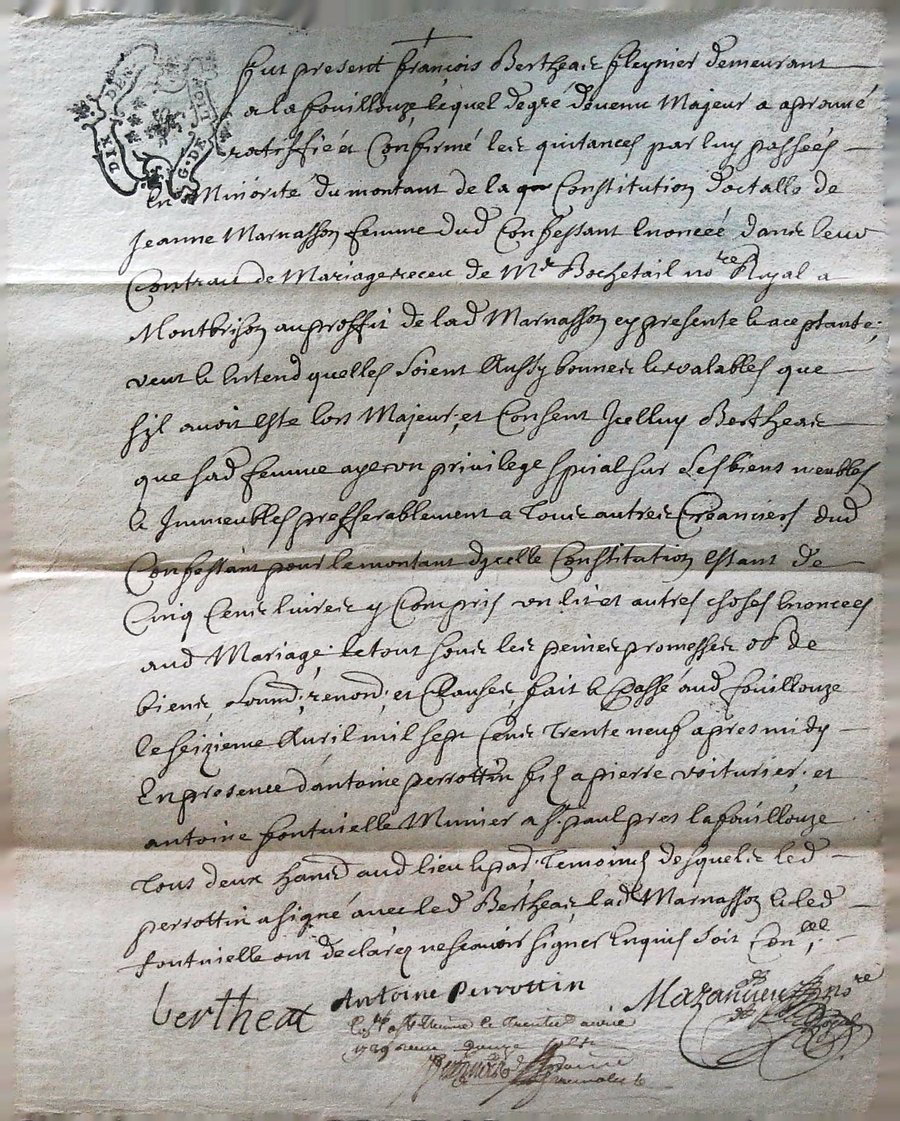 DIX DEN.
G. DE LION
fut present françois Bertheas fleynier demeurant
a la fouillouze, lequel de gré devenu Majeur a aprouvé
ratiffié et Confirmé les quitances par luy passées
en Minorité du montant de la Constitution dotalle de
Jeanne Marnasson femme dud Confessant Enoncéé dans leur
Contract de Mariage receu de Mr Bochetail nore Royal a
Montbrison au proffit de lad Marnasson cy presente & aceptante;
veut & Entend quelles soient Aussy bonnes & valables que
sil avoit Este lors Majeur, et Consent Icelluy Bertheas
que sad femme aye un privilege spicial sur ses biens meubles
& Immeubles presferablement a Tous autres Creanciers dud
Confessant pour le montant dycelle Constitution Estant de
Cinq Cens livres y Compris un lit et autres choses Enoncées
aud Mariage; le tout sous les peines promesses ob de
biens, soumd; renond; et Clauses, fait & Passé aud fouillouze
le seizieme Avril mil sept Cens Trente neuf apres midy
En presence dantoine perrottin fils a pierre voiturier, et
antoine fontvielle Munier a St paul pres la fouillouze
Tous deux aud lieu & pad. Temoins desquels led
perrottin a signé avec led Bertheas, lad Marnasson & led
fontvielle ont declaré ne scavoir signer Enquis soit Con.lle
bertheas Antoine Perrottin Mazandieu nore
Royal
le Trente avril
1739 receu douze sols